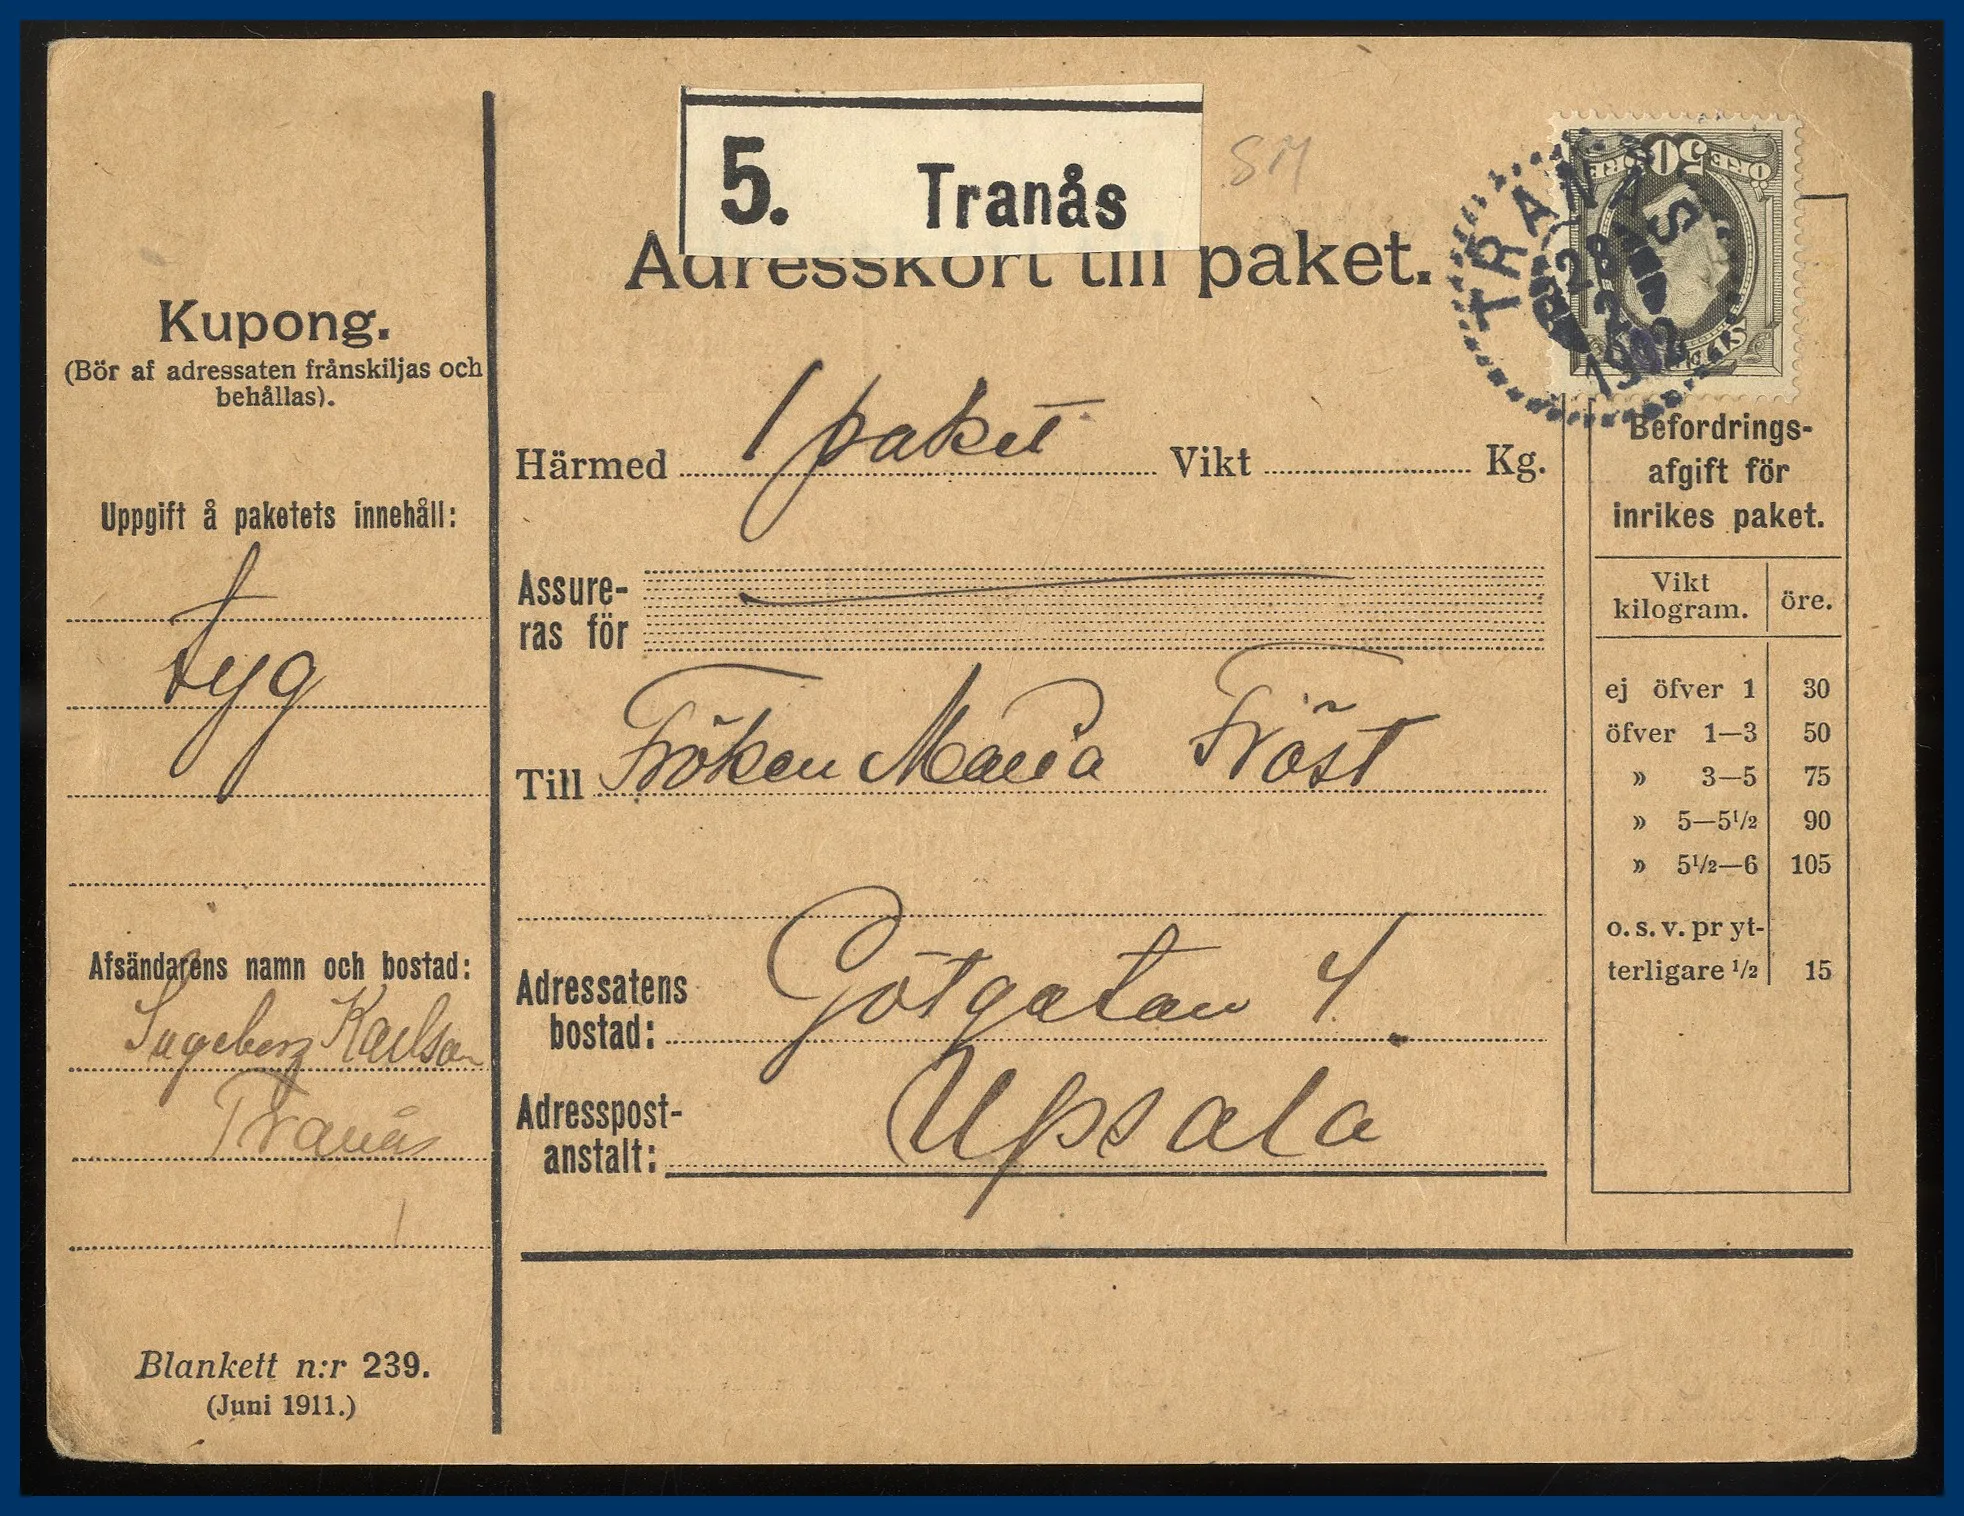 5. Tranås
SM
Adresskort till paket.
Kupong.
(Bör af adressaten frånskiljas och
behållas).
Uppgift å paketets innehåll:
tyg
Afsändarens namn och bostad:
Ingeborg Karlson
Tranås
Blankett n:r 239.
(Juni 1911.)
Härmed 1 paket Vikt Kg.
Assure-
ras för
Till Fröken Maria Fröst
Adressatens
bostad: Götgatan 4.
Adresspost-
anstalt: Upsala
50
ÖRE ÖRE
TRANÅS
28
2
Befordrings-
afgift för
inrikes paket.
Vikt
kilogram. öre.
ej öfver 1 30
öfver 1—3 50
» 3—5 75
» 5—5 1/2 90
» 5 1/2—6 105
o. s. v. pr yt-
terligare 1/2 15